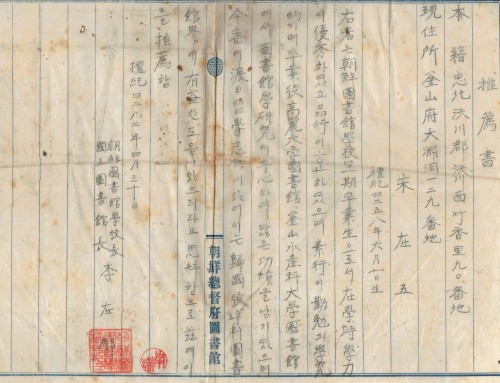 推薦書
本籍 忠北沃川郡 濟西竹香里九○番地
現住所 釜山府大淵洞一二九番地
宋在五
檀紀四二五八年六月一○日生
右者는 朝鮮圖書館學校第一期卒業生으로서 在學時學力
이優秀하였고 品行이 하였으며 素行이 勤勉
卒業後 高麗大學圖書館 釜山水産科大學圖書館
에서 圖書館學研究에 하여 많은 功績을 남기었으며
今番에 渡日 이 있어서는 歸國後 圖書
館界에 有益한 도움이 있으리라고 思料함으로 茲에 이
를 推薦함
檀紀四二八二年四月三十日
朝鮮圖書館學校長
國立圖書館長 李在
朝鮮總督府圖書館